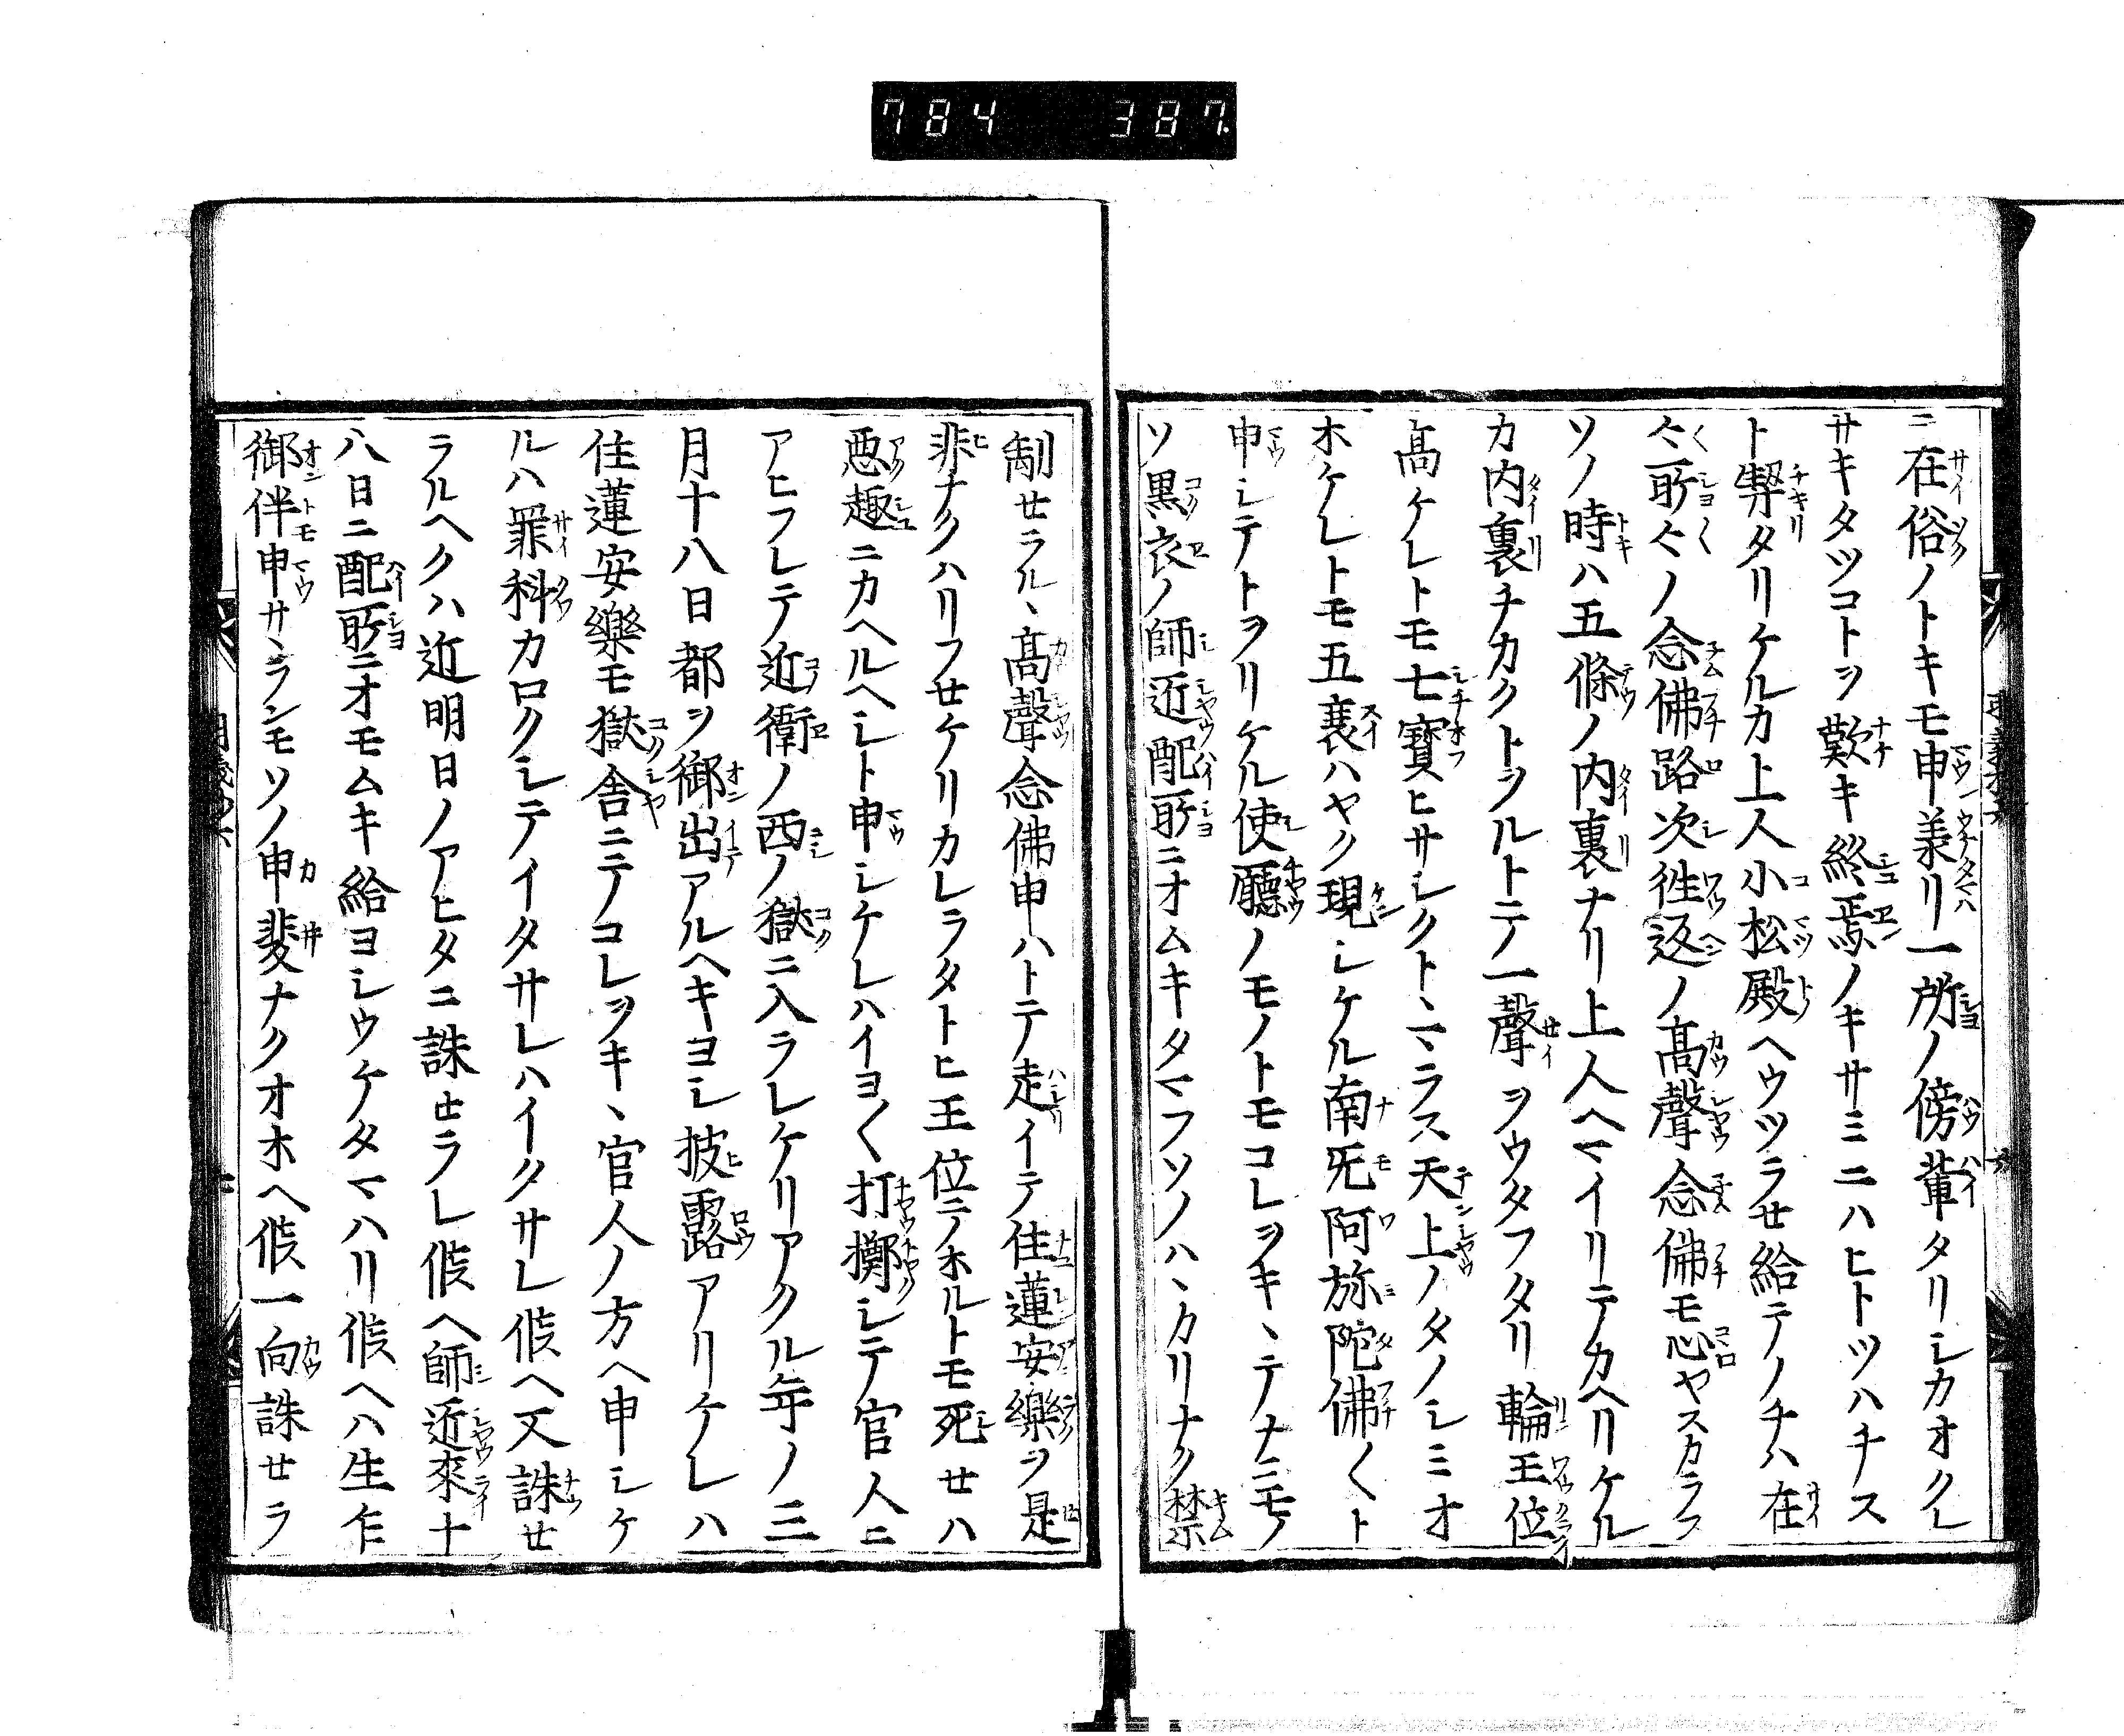 784 387
ニ在俗ノトキモ申義リ一所ノ傍輩タリシカオクレ
サキタツコトヲ歎キ終焉ノキサミニハヒトツハチス
ト契タリケルカ上人小松殿ヘウツラセ給テノチハ在
々所々ノ念佛路次徃返ノ高聲念佛モ心ヤスカラス
ソノ時ハ五條ノ内裏ナリ上人ヘマイリテカヘリケル
カ内裏チカクトヲルトテ一聲ヲウタフタリ輪王位
高ケレトモ七寶ヒサシクトヽマラス天上ノタノシミオ
ホケレトモ五衰ハヤク現シケル南无阿弥陀佛〱ト
申シテトヲリケル使廳ノモノトモコレヲキヽテナニモノ
ソ黒衣ノ師近配所ニオムキタマフソノハヽカリナク禁
制せラルヽ高聲念佛申ハトテ走イテ住蓮安樂ヲ是
非ナクハリフせケリカレラタトヒ王位ニノホルトモ死せハ
悪趣ニカヘルヘシト申シケレハイヨ〱打擲シテ官人ニ
アヒフレテ近衛ノ西ノ獄ニ入ラレケリアクル年ノ三
月十八日都ヲ御出アルヘキヨシ披露アリケレハ
住蓮安樂モ獄舎ニテコレヲキヽ官人ノ方ヘ申シケ
ルハ罪科カロクシテイタサレハイクサレ候ヘ又誅せ
ラルヘクハ近明日ノアヒタニ誅せラレ候ヘ師近來十
八日ニ配所ニオモムキ給ヨシウケタマハリ候ヘハ生乍
御伴申サヽランモソノ申斐ナクオホヘ候一向誅せラ